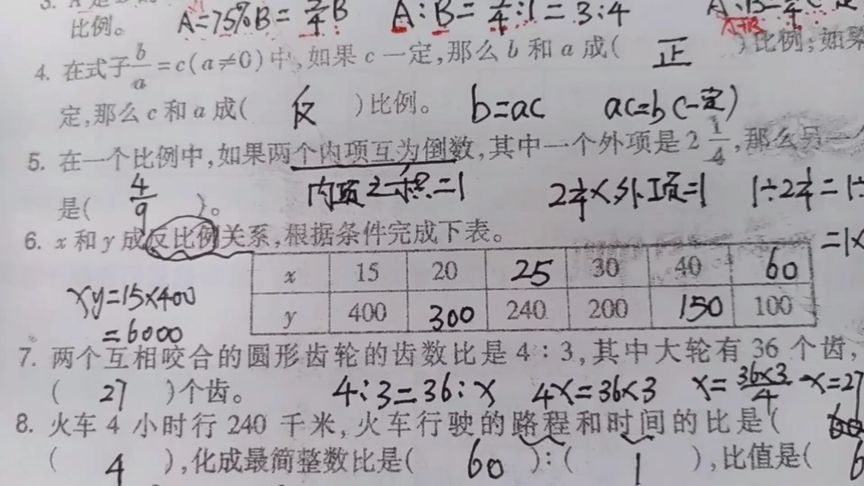 比例。 A=75%B=3/4B A:B=3/4:1=3:4
4. 在式子b/a=c(a≠0)中,如果c一定,那么b和a成( 正 )比例;如果
定,那么c和a成( 反 )比例。 b=ac ac=b(一定)
5. 在一个比例中,如果两个内项互为倒数,其中一个外项是2 1/4,那么另一
是( 4/9 )。 内项之积=1 2 1/4×外项=1 1÷2 1/4=1÷
6. x和y成反比例关系,根据条件完成下表。 =1×
x 15 20 25 30 40 60
xy=15×400
y 400 300 240 200 150 100
=6000
7. 两个互相咬合的圆形齿轮的齿数比是4:3,其中大轮有36个齿,
( 27 )个齿。 4:3=36:x 4x=36×3 x=36×3/4 x=27
8. 火车4小时行240千米,火车行驶的路程和时间的比是(
( 4 ),化成最简整数比是( 60 ):( 1 ),比值是( 6